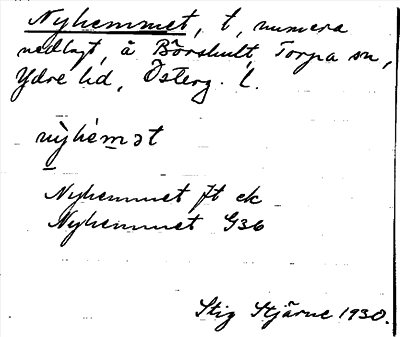 Nyhemmet, t, numera
nedlagt, å Börshult, Torpa sn,
Ydre hd, Österg. l.
nỳhémət
Nyhemmet ft ek
Nyhemmet G36
Stig Stjärne 1930.